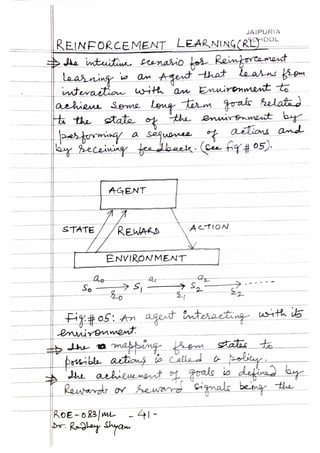 JAIPURIA
SCHOOL
REINFORCEMENT LEARNING(RL)
⇒ The intuitive scenario for Reinforcement
Learning is an Agent that learns from
interaction with an Environment to
achieve some long term goals related
to the state of the environment by
performing a sequence of actions and
by receiving feedback. (See fig # 05).
AGENT
STATE REWARD ACTION
ENVIRONMENT
a0 a1 a2
S0 → S1 → S2 → ......
r0 r1 r2
Fig:# 05: An agent interacting with its
environment.
⇒ The mapping from states to
possible actions is called a policy.
⇒ The achievement of goals is defined by
Rewards or reward signals being the
ROE-083/ML - 41 -
Dr. Radhey Shyam